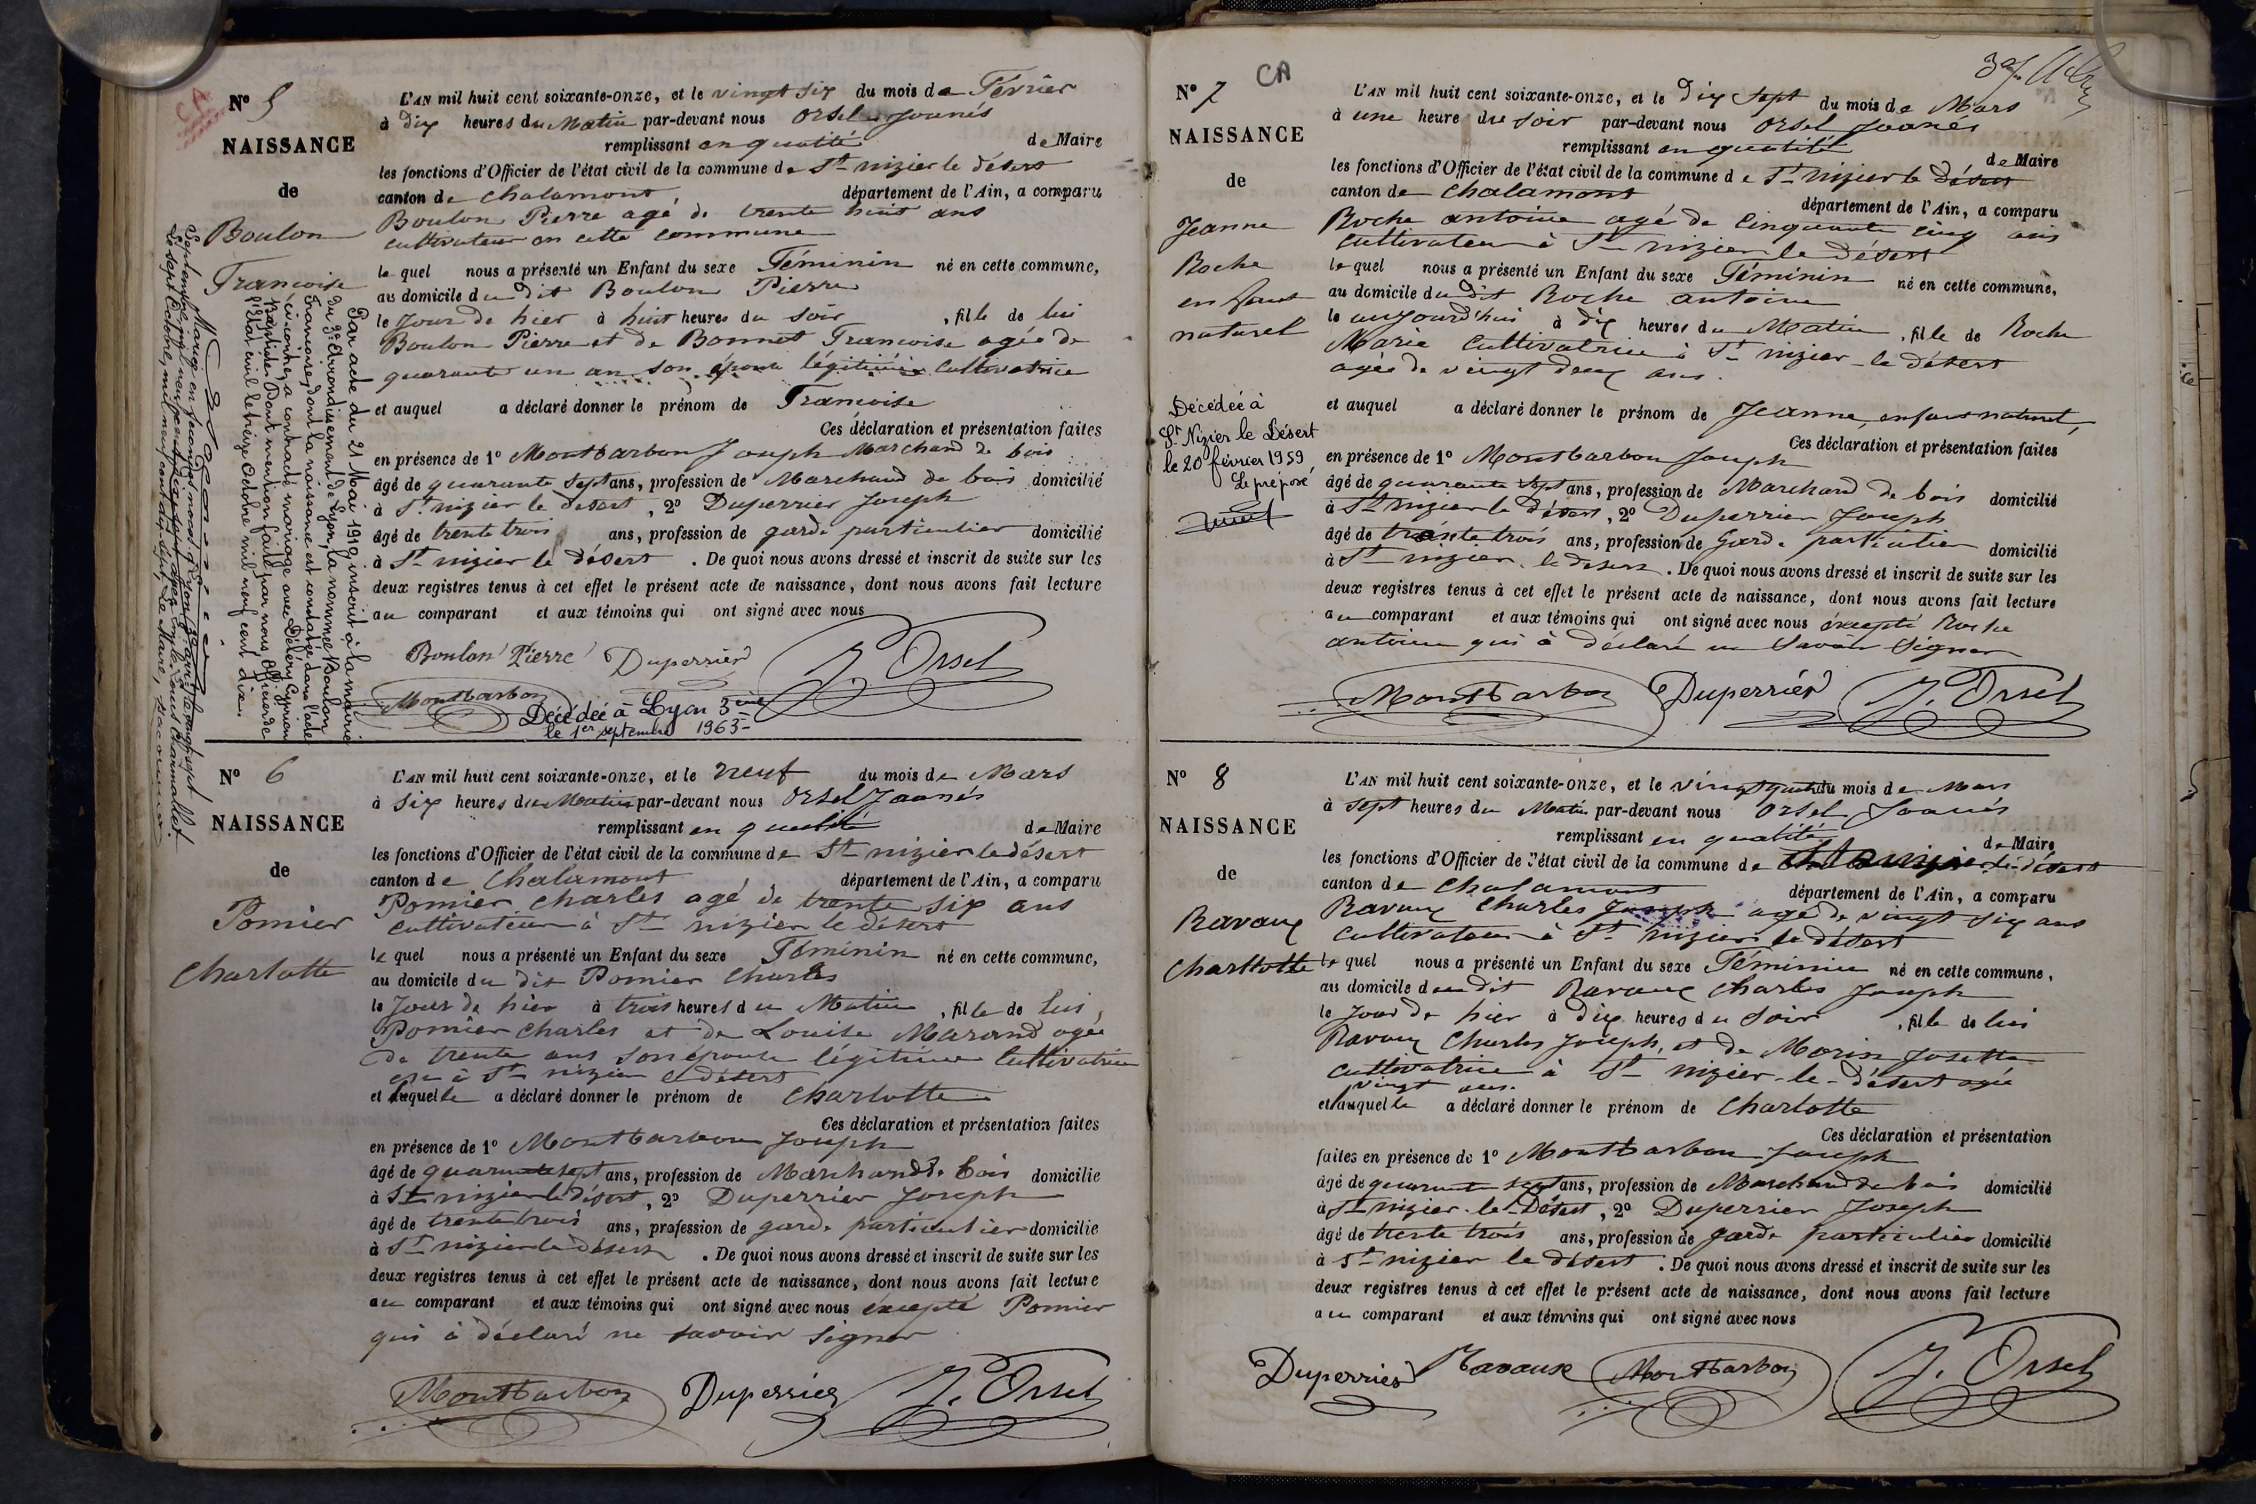 CA
Nº 5
NAISSANCE
de
Boulon
Francoise
L'AN mil huit cent soixante-onze, et le vingt six du mois de Février
à dix heures du Matin par-devant nous Orsel Joanés
remplissant en qualité de Maire
les fonctions d'Officier de l'état civil de la commune de St nizier le désert
canton de Chalamont département de l'Ain, a comparu
Boulon Pierre agé de trente huit ans
cultivateur en cette commune
le quel nous a présenté un Enfant du sexe Féminin né en cette commune,
au domicile du dit Boulon Pierre
le Jour de hier à huit heures du soir, fille de lui
Boulon Pierre et de Bonnet Francoise agée de
quarante un an son épouse légitimée Cultivatrice
et auquel a déclaré donner le prénom de Francoise
Ces déclaration et présentation faites
en présence de 1º Montbarbon Joseph Marchand de bois
âgé de quarante sept ans, profession de Marchand de bois domicilié
à St nizier le désert, 2º Duperrier Joseph
âgé de trente trois ans, profession de garde particulier domicilié
à St nizier le désert. De quoi nous avons dressé et inscrit de suite sur les
deux registres tenus à cet effet le présent acte de naissance, dont nous avons fait lecture
au comparant et aux témoins qui ont signé avec nous
Boulon Pierre Duperrier J. Orsel
Montbarbon
Décédée à Lyon 3ème
le 1er septembre 1963
Par acte du 21 Mai 1910 inscrit à la mairie
du 3e Arrondissement de Lyon, la nommée Boulon
Francoise, dont la naissance est constatée dans l'acte
ci-contre, a contracté mariage avec Déléry Cyprien
Baptiste. Dont mention faite par nous Officier de
l'Etat civil le treize Octobre mil neuf cent dix.
Nº 6
NAISSANCE
de
Pomier
Charlotte
L'AN mil huit cent soixante-onze, et le neuf du mois de Mars
à six heures du Matin par-devant nous Orsel Joanés
remplissant en qualité de Maire
les fonctions d'Officier de l'état civil de la commune de St nizier le désert
canton de Chalamont département de l'Ain, a comparu
Pomier Charles agé de trente six ans
cultivateur à St nizier le désert
le quel nous a présenté un Enfant du sexe Féminin né en cette commune,
au domicile du dit Pomier Charles
le Jour de hier à trois heures du Matin, fille de lui,
Pomier Charles et de Louise Marand agée
de trente ans son épouse légitime Cultivatrice
à St nizier le désert
et auquelle a déclaré donner le prénom de Charlotte
Ces déclaration et présentation faites
en présence de 1º Montbarbon Joseph
âgé de quarante sept ans, profession de Marchand de bois domicilié
à St nizier le désert, 2º Duperrier Joseph
âgé de trente trois ans, profession de garde particulier domicilié
à St nizier le désert. De quoi nous avons dressé et inscrit de suite sur les
deux registres tenus à cet effet le présent acte de naissance, dont nous avons fait lecture
au comparant et aux témoins qui ont signé avec nous éxcepté Pomier
qui à déclaré ne savoir signer
Montbarbon Duperrier J. Orsel
Nº 7
CA
NAISSANCE
de
Jeanne
Roche
enfant
naturel
Décédée à
St Nizier le Désert
le 20 février 1959
Le préposé
L'AN mil huit cent soixante-onze, et le dix sept du mois de Mars
à une heure du soir par-devant nous Orsel Joanés
remplissant en qualité de Maire
les fonctions d'Officier de l'état civil de la commune de St nizier le désert
canton de Chalamont département de l'Ain, a comparu
Roche antoine agé de cinquante cinq ans
cultivateur à St nizier le désert
le quel nous a présenté un Enfant du sexe Féminin né en cette commune,
au domicile du dit Roche antoine
le aujourd'hui à dix heures du Matin, fille de Roche
Marie Cultivatrice à St nizier le désert
agée de vingt deux ans.
et auquel a déclaré donner le prénom de Jeanne, enfant naturel,
Ces déclaration et présentation faites
en présence de 1º Montbarbon Joseph
âgé de quarante sept ans, profession de Marchand de bois domicilié
à St nizier le désert, 2º Duperrier Joseph
âgé de trente trois ans, profession de garde particulier domicilié
à St nizier le désert. De quoi nous avons dressé et inscrit de suite sur les
deux registres tenus à cet effet le présent acte de naissance, dont nous avons fait lecture
au comparant et aux témoins qui ont signé avec nous éxcepté Roche
antoine qui à déclaré ne Savoir Signer
Montbarbon Duperrier J. Orsel
Nº 8
NAISSANCE
de
Ravaux
Charltotte
L'AN mil huit cent soixante-onze, et le vingt quatre du mois de Mars
à sept heures du Matin par-devant nous Orsel Joanés
remplissant en qualité de Maire
les fonctions d'Officier de l'état civil de la commune de St nizier le désert
canton de Chalamont département de l'Ain, a comparu
Ravaux Charles Joseph agé de vingt six ans
cultivateur à St nizier le désert
le quel nous a présenté un Enfant du sexe Féminin né en cette commune,
au domicile du dit Ravaux Charles Joseph
le Jour de hier à dix heures du Soir, fille de lui
Ravaux Charles Joseph, et de Morin Josette
cultivatrice à St nizier-le-désert agée
vingt ans.
et auquelle a déclaré donner le prénom de Charlotte
Ces déclaration et présentation
faites en présence de 1º Montbarbon Joseph
âgé de quarante sept ans, profession de Marchand de bois domicilié
à St nizier-le-Désert, 2º Duperrier Joseph
âgé de trente trois ans, profession de garde particulier domicilié
à St nizier le désert. De quoi nous avons dressé et inscrit de suite sur les
deux registres tenus à cet effet le présent acte de naissance, dont nous avons fait lecture
au comparant et aux témoins qui ont signé avec nous
Duperrier Ravaux Montbarbon J. Orsel